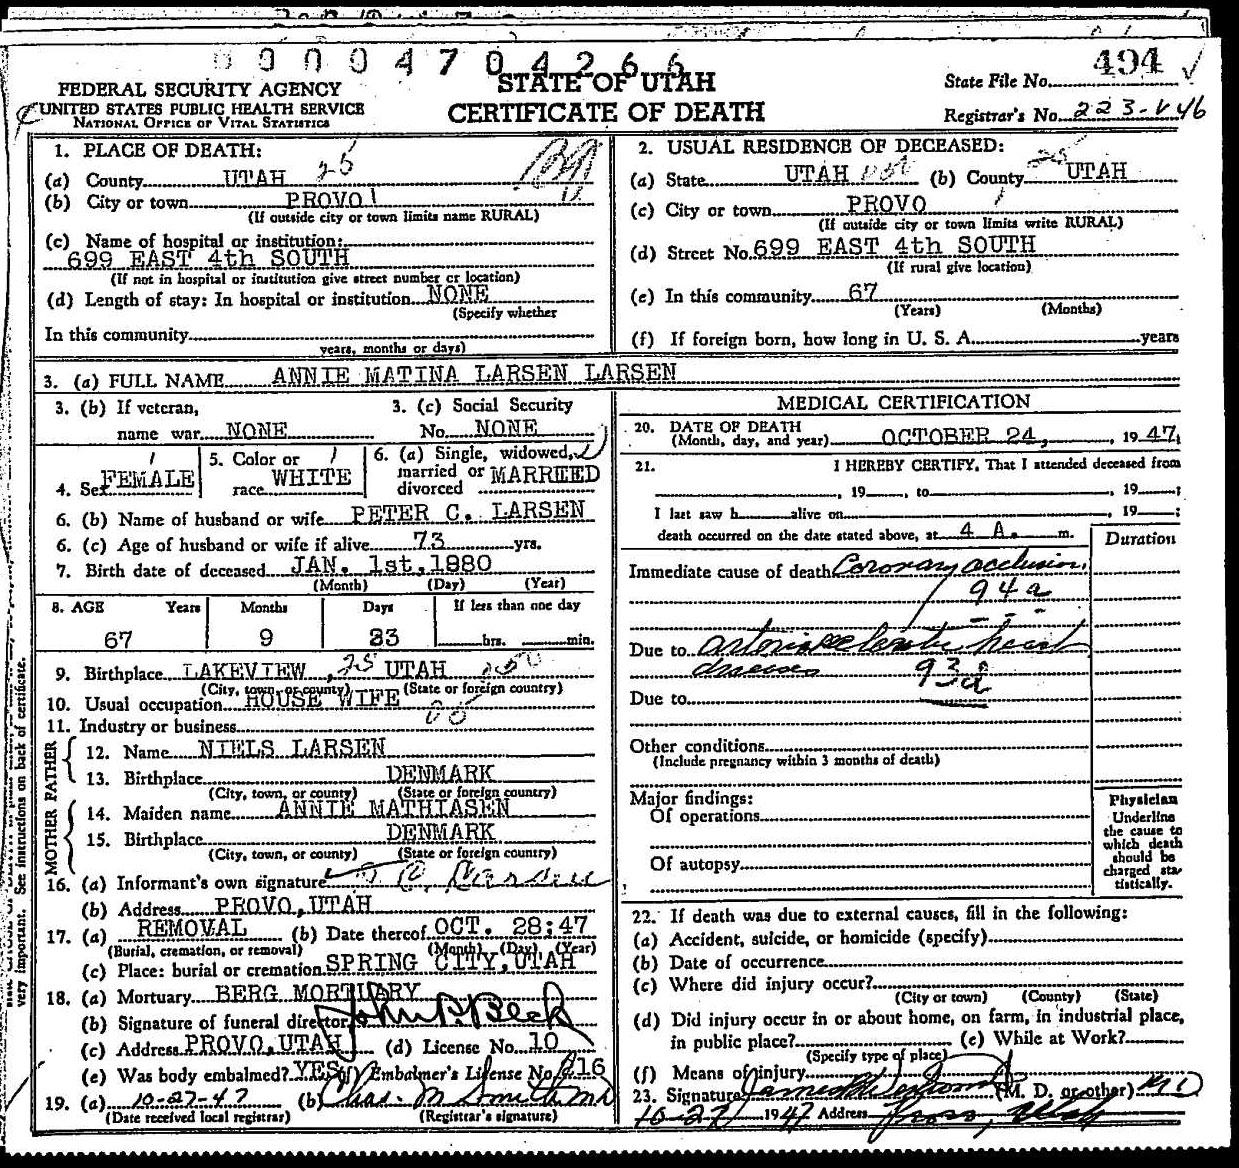 00004704266
FEDERAL SECURITY AGENCY
UNITED STATES PUBLIC HEALTH SERVICE
NATIONAL OFFICE OF VITAL STATISTICS
STATE OF UTAH
CERTIFICATE OF DEATH
State File No. 494
Registrar's No. 223-V46
1. PLACE OF DEATH:
(a) County UTAH 25
(b) City or town PROVO 1
(If outside city or town limits name RURAL)
(c) Name of hospital or institution:
699 EAST 4th SOUTH
(If not in hospital or institution give street number or location)
(d) Length of stay: In hospital or institution NONE
(Specify whether
In this community
years, months or days)
2. USUAL RESIDENCE OF DECEASED:
(a) State UTAH (b) County 25 UTAH
(c) City or town PROVO 1
(If outside city or town limits write RURAL)
(d) Street No. 699 EAST 4th SOUTH
(If rural give location)
(e) In this community 67
(Years) (Months)
(f) If foreign born, how long in U. S. A. years
3. (a) FULL NAME ANNIE MATINA LARSEN LARSEN
3. (b) If veteran, 3. (c) Social Security
name war NONE No. NONE
4. Sex FEMALE 5. Color or race WHITE 6. (a) Single, widowed, married or divorced MARRIED
6. (b) Name of husband or wife PETER C. LARSEN
6. (c) Age of husband or wife if alive 73 yrs.
7. Birth date of deceased JAN. 1st, 1880
(Month) (Day) (Year)
8. AGE Years Months Days If less than one day
67 9 23 hrs. min.
9. Birthplace LAKEVIEW, 25 UTAH
(City, town, or county) (State or foreign country)
10. Usual occupation HOUSE WIFE
11. Industry or business
FATHER
12. Name NIELS LARSEN
13. Birthplace DENMARK
(City, town, or county) (State or foreign country)
MOTHER
14. Maiden name ANNIE MATHIASEN
15. Birthplace DENMARK
(City, town, or county) (State or foreign country)
16. (a) Informant's own signature Larsen
(b) Address PROVO, UTAH
17. (a) REMOVAL (b) Date thereof OCT. 28:47
(Burial, cremation, or removal) (Month) (Day) (Year)
(c) Place: burial or cremation SPRING CITY, UTAH
18. (a) Mortuary BERG MORTUARY
(b) Signature of funeral director John P. Beck
(c) Address PROVO, UTAH (d) License No. 10
(e) Was body embalmed? YES (f) Embalmer's License No. 216
19. (a) 10-27-47 (b) Chas. M Smith MD
(Date received local registrar) (Registrar's signature)
MEDICAL CERTIFICATION
20. DATE OF DEATH
(Month, day, and year) OCTOBER 24, 1947
21. I HEREBY CERTIFY, That I attended deceased from
, 19 , to , 19 ;
I last saw h alive on , 19 ;
death occurred on the date stated above, at 4 A. m.
Duration
Immediate cause of death Coronary occlusion
94a
Due to arteriosclerotic heart
disease 93a
Due to
Other conditions
(Include pregnancy within 3 months of death)
Major findings:
Of operations
Of autopsy
Physician
Underline
the cause to
which death
should be
charged sta-
tistically.
22. If death was due to external causes, fill in the following:
(a) Accident, suicide, or homicide (specify)
(b) Date of occurrence
(c) Where did injury occur?
(City or town) (County) (State)
(d) Did injury occur in or about home, on farm, in industrial place,
in public place? (e) While at Work?
(Specify type of place)
(f) Means of injury
23. Signature James (M. D. or other) MD
10-27 1947 Address Provo, Utah
very important. See instructions on back of certificate.